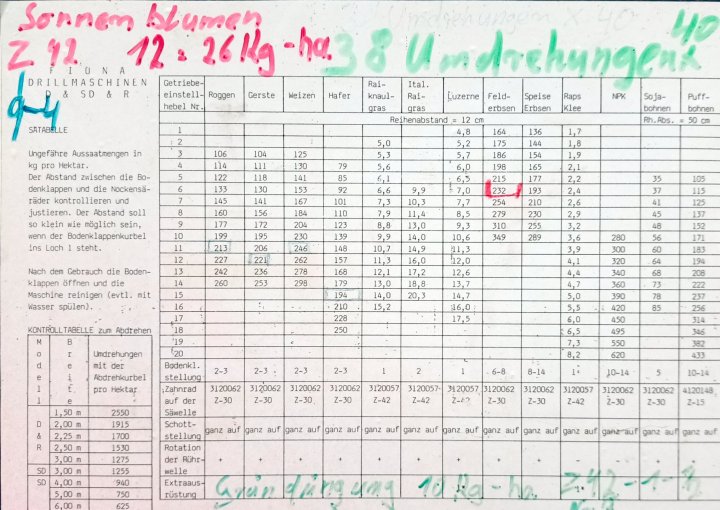 Sonnenblumen
Z 42 12 = 26 Kg-ha. 38 Umdrehungen x 40
9-4
FIONA
DRILLMASCHINEN
D & SD & R
SÄTABELLE
Ungefähre Aussaatmengen in
kg pro Hektar.
Der Abstand zwischen die Bo-
denklappen und die Nockensä-
räder kontrollieren und
justieren. Der Abstand soll
so klein wie möglich sein,
wenn der Bodenklappenkurbel
ins Loch 1 steht.
Nach dem Gebrauch die Boden-
klappen öffnen und die
Maschine reinigen (evtl. mit
Wasser spülen).
KONTROLLTABELLE zum Abdrehen
Modell Breite Umdrehungen mit der Abdrehkurbel pro Hektar
1,50 m 2550
D 2,00 m 1915
& 2,25 m 1700
R 2,50 m 1530
3,00 m 1275
SD 3,00 m 1255
SD 4,00 m 940
5,00 m 750
6,00 m 625
Getriebe-einstell-hebel Nr. Roggen Gerste Weizen Hafer Rai-knaulgras Ital. Rai-gras Luzerne Feld-erbsen Speise Erbsen Raps Klee NPK Soja-bohnen Puff-bohnen
Reihenabstand = 12 cm Rh.Abs. = 50 cm
1 4,8 164 136 1,7
2 5,0 5,2 175 144 1,8
3 106 104 125 5,3 5,7 186 154 1,9
4 114 111 130 79 5,6 6,0 198 165 2,1
5 122 118 141 85 6,1 6,5 215 177 2,2 35 105
6 133 130 153 92 6,6 9,9 7,0 232 193 2,4 37 115
7 145 141 167 101 7,3 10,3 7,7 254 210 2,6 41 125
8 160 156 184 110 7,9 11,4 8,5 279 230 2,9 45 137
9 177 172 204 123 8,8 13,0 9,3 310 255 3,2 48 152
10 199 195 230 139 9,9 14,0 10,6 349 289 3,6 280 56 171
11 213 206 246 148 10,7 14,9 11,3 3,9 300 60 183
12 227 221 262 157 11,3 16,0 12,0 4,1 320 64 194
13 242 236 278 168 12,1 17,2 12,6 4,4 340 68 208
14 260 253 298 179 13,0 18,8 13,7 4,7 360 73 222
15 194 14,0 20,3 14,7 5,0 390 78 237
16 210 15,2 16,0 5,5 420 85 256
17 228 17,5 6,0 450 314
18 250 6,5 495 346
19 7,3 550 382
20 8,2 620 433
Bodenkl. stellung 2-3 2-3 2-3 2-3 1 2 1 6-8 8-14 1 10-14 5 10-14
Zahnrad auf der Säwelle 3120062 Z-30 3120062 Z-30 3120062 Z-30 3120062 Z-30 3120057 Z-42 3120057 Z-42 3120057 3120062 Z-30 3120062 Z-30 3120057 Z-42 3120062 Z-30 3120062 Z-30 4120148 Z-15
Schott-stellung ganz auf ganz auf ganz auf ganz auf ganz auf ganz auf ganz auf ganz auf ganz auf ganz auf ganz auf ganz auf ganz auf
Rotation der Rühr-welle + + + + + + + + + + +
Extraaus-rüstung
Gründüngung 10 Kg-ha. Z 42-1-9